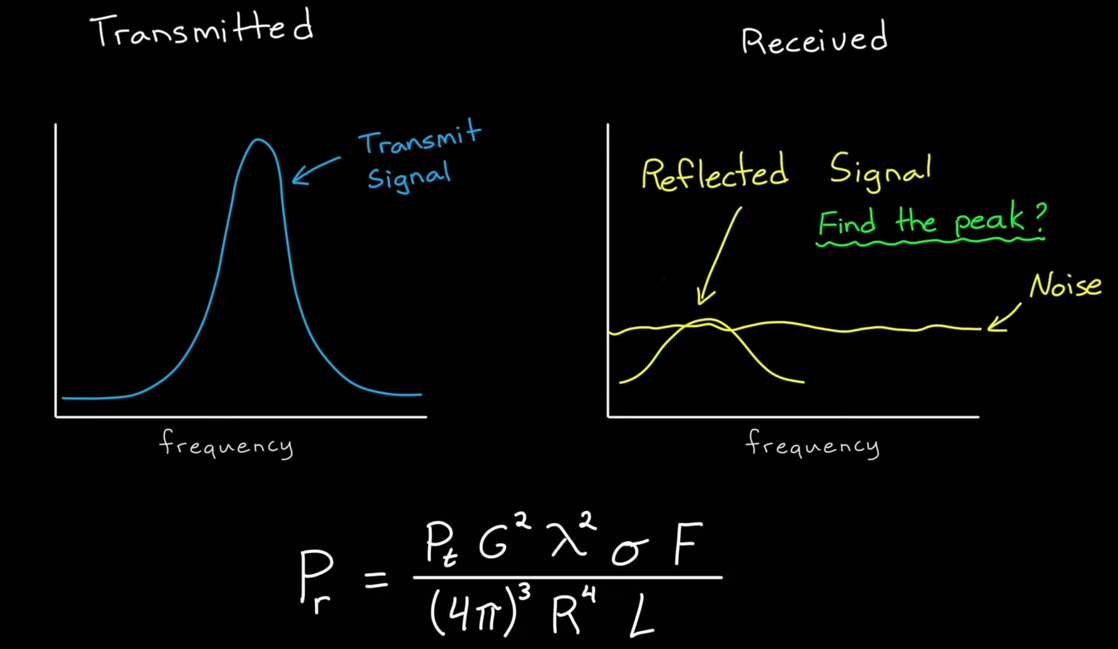 Transmitted
Received
Transmit
Signal
Reflected Signal
Find the peak?
Noise
frequency
frequency
Pᵣ = Pₜ G² λ² σ F / (4π)³ R⁴ L